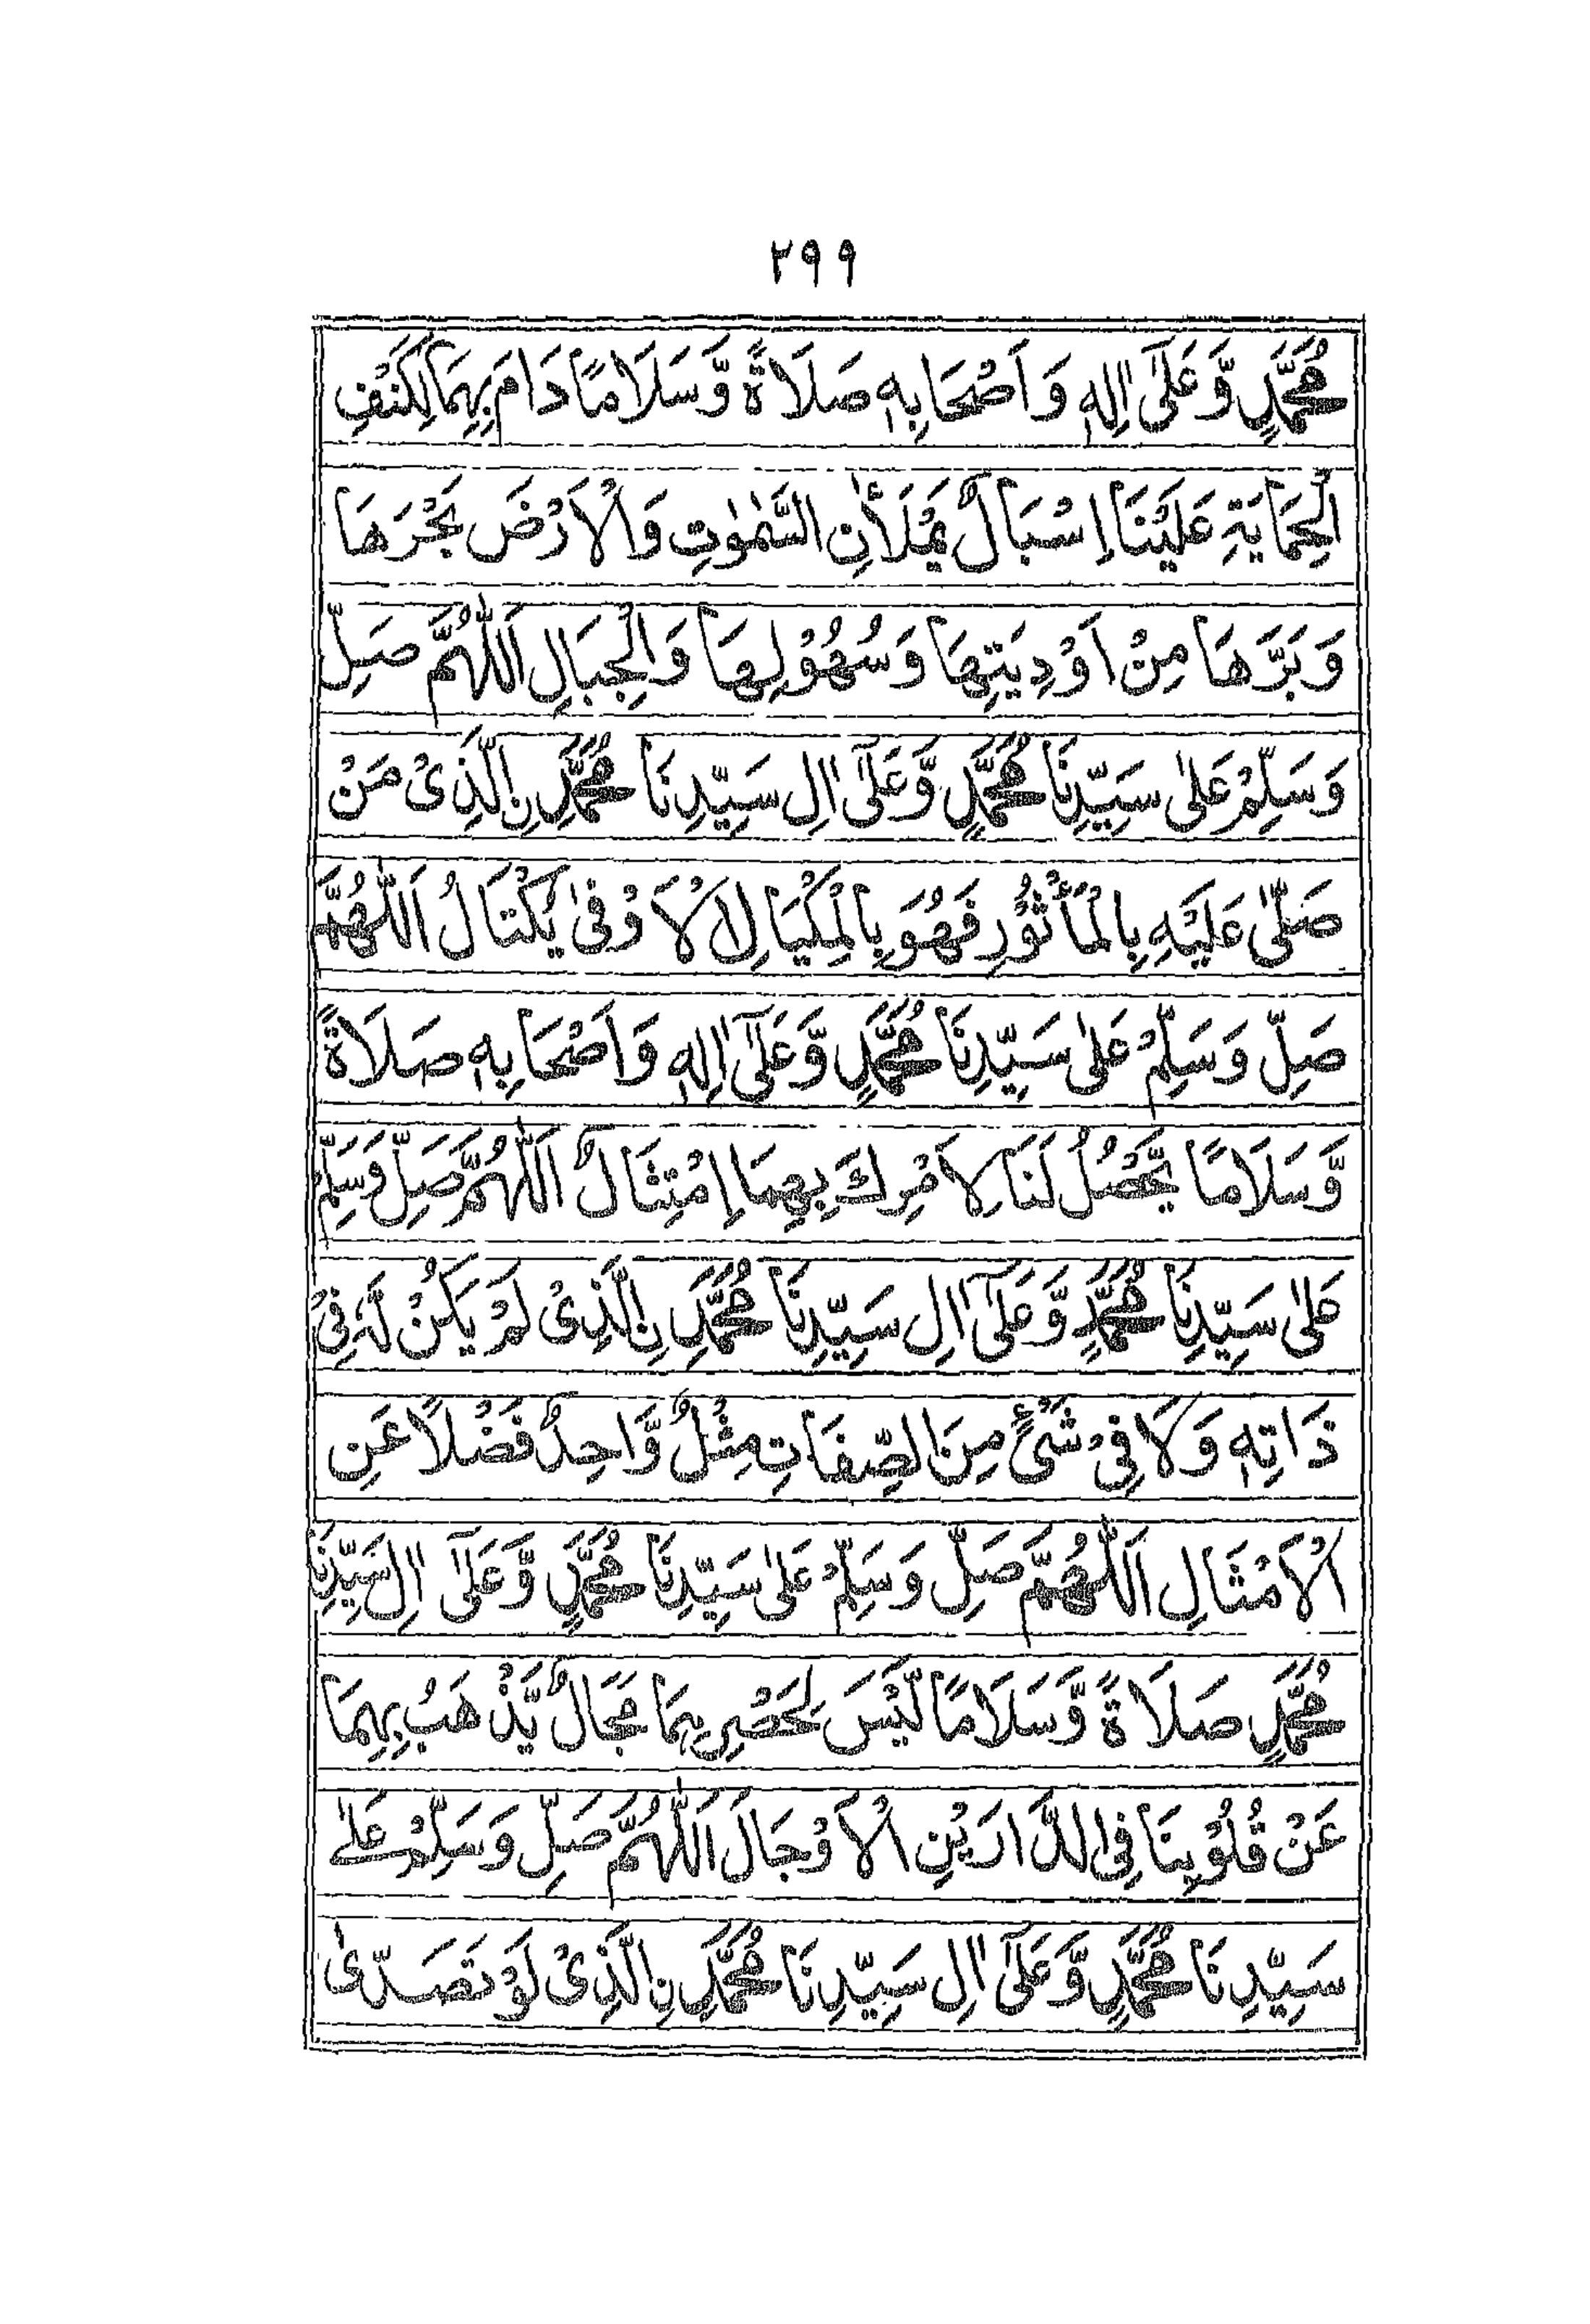 ۲۹۹
مُحَمَّدٍ وَّعَلٰٓى اٰلِهٖ وَاَصْحَابِهٖ صَلَاةً وَّسَلَامًا دَامَ بِهِمَا لِكَنَفِ
الْحِمَايَةِ عَلَيْنَا اِسْبَالٌ يَمْلَأٰنِ السَّمٰوٰتِ وَالْاَرْضَ بَحْرَهَا
وَبَرَّهَا مِنْ اَوْدِيَتِهَا وَسُهُوْلِهَا وَالْجِبَالِ اَللّٰهُمَّ صَلِّ
وَسَلِّمْ عَلٰى سَيِّدِنَا مُحَمَّدٍ وَّعَلٰٓى اٰلِ سَيِّدِنَا مُحَمَّدِنِ الَّذِىْ مَنْ
صَلّٰى عَلَيْهِ بِالْمَأْثُوْرِ فَهُوَ بِالْمِكْيَالِ الْاَوْفٰى يَكْتَالُ اَللّٰهُمَّ
صَلِّ وَسَلِّمْ عَلٰى سَيِّدِنَا مُحَمَّدٍ وَّعَلٰٓى اٰلِهٖ وَاَصْحَابِهٖ صَلَاةً
وَّسَلَامًا يَّحْصُلُ لَنَا لِاَمْرِكَ بِهِمَا اِمْتِثَالٌ اَللّٰهُمَّ صَلِّ وَسَلِّمْ
عَلٰى سَيِّدِنَا مُحَمَّدٍ وَّعَلٰٓى اٰلِ سَيِّدِنَا مُحَمَّدِنِ الَّذِىْ لَمْ يَكُنْ لَّهٗ فِىْ
ذَاتِهٖ وَلَا فِىْ شَىْءٍ مِنَ الصِّفَاتِ مِثْلٌ وَّاحِدٌ فَضْلًا عَنِ
الْاَمْثَالِ اَللّٰهُمَّ صَلِّ وَسَلِّمْ عَلٰى سَيِّدِنَا مُحَمَّدٍ وَّعَلٰٓى اٰلِ سَيِّدِنَا
مُحَمَّدٍ صَلَاةً وَّسَلَامًا لَيْسَ لِحَصْرِهِمَا مَجَالٌ يَّذْهَبُ بِهِمَا
عَنْ قُلُوْبِنَا فِى الدَّارَيْنِ الْاَوْجَالَ اَللّٰهُمَّ صَلِّ وَسَلِّمْ عَلٰى
سَيِّدِنَا مُحَمَّدٍ وَّعَلٰٓى اٰلِ سَيِّدِنَا مُحَمَّدِنِ الَّذِىْ لَوْ تَصَدّٰى